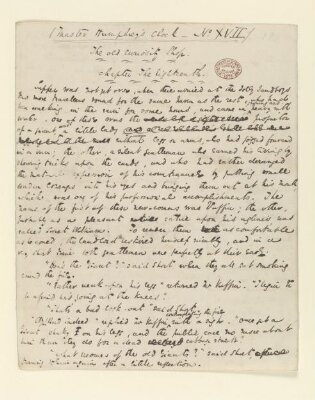 (Master Humphrey's Clock — No XVII.)
The old curiosity shop.
Chapter The
Supper was not yet over, when there arrived at the Jolly Sandboys
two more travellers bound for the same haven as the rest
been walking in the rain for some hours, and came in shining and heavy with
water. One of these was the proprietor
of a giant, and a little lady without legs or arms, who had jogged forward
in a van; the other, a silent gentleman who earned his living by
showing tricks upon the cards, and who had rather deranged
the natural expression of his countenance by putting small
leaden lozenges into his eyes and bringing them out at his mouth
which was one of his professional accomplishments. The
name of the first of these newcomers was Vuffin; the other,
probably as a pleasant satire upon his ugliness was
called Sweet William. To render them as comfortable as
he could, the landlord bestirred himself nimbly, and in a
very short time both gentlemen were perfectly at their ease.
"How's the Giant?" said Short when they all sat smoking
round the fire.
"Rather weak upon his legs" returned Mr Vuffin. "I begin to
be afraid he's going at the knees."
"That's a bad look-out" said Short.
"Aye! Bad indeed" replied Mr Vuffin, with a sigh. "Once get a
Giant shaky on his legs, and the public care no more about
him than they do for a dead cabbage stalk."
"What becomes of the old Giants?" said Short
turning to him again after a little reflection.